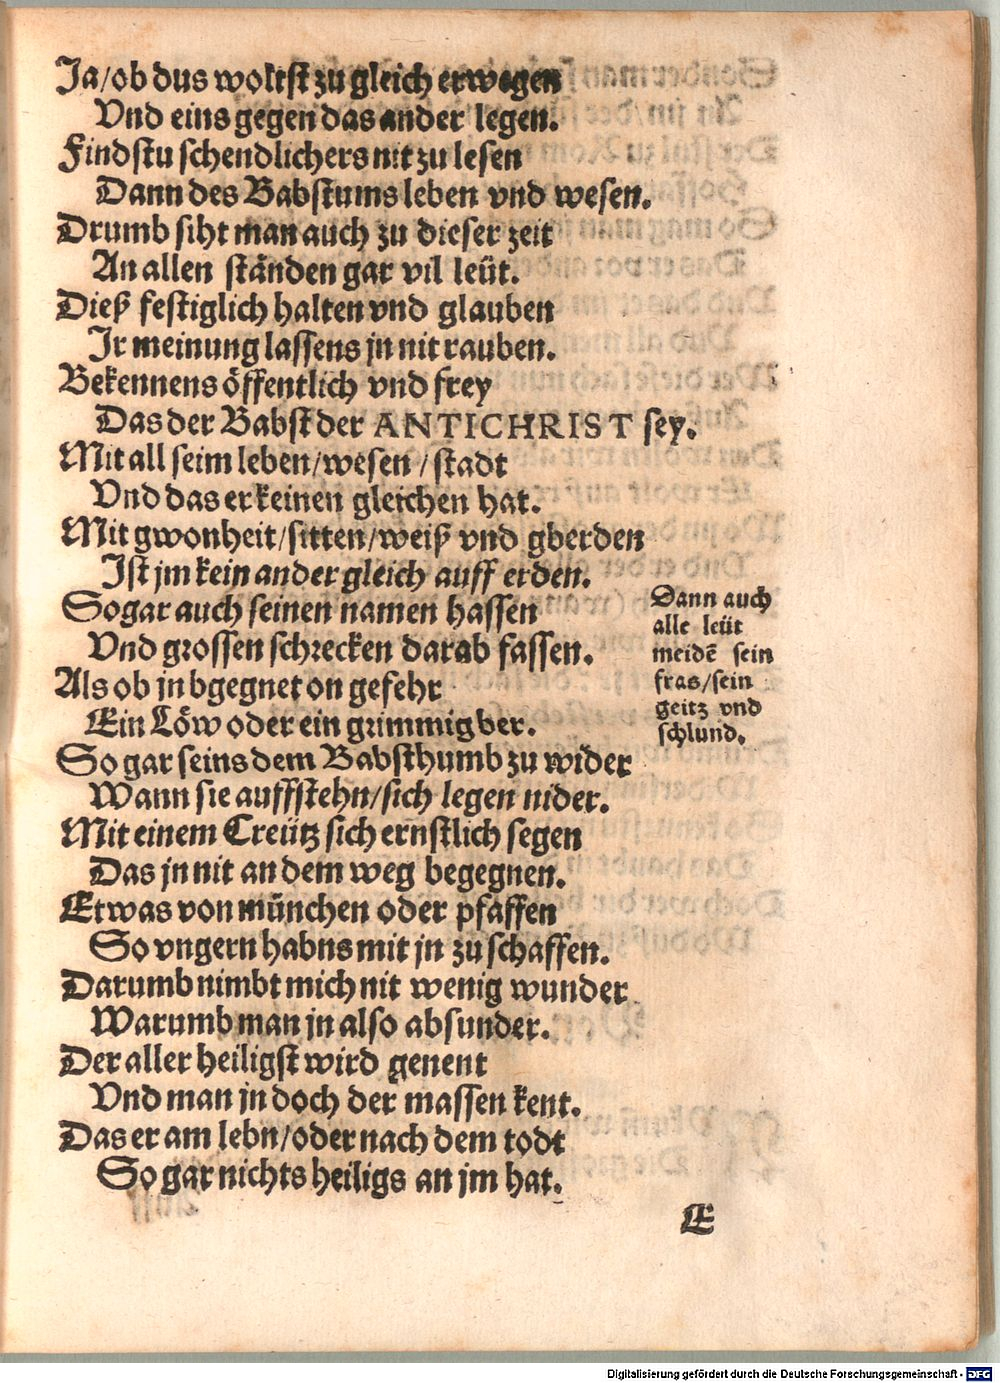 Ja/ob dus woltst zu gleich erwegen
Vnd eins gegen das ander legen.
Findstu schendlichers nit zu lesen
Dann des Babstums leben vnd wesen.
Drumb siht man auch zu dieser zeit
An allen ständen gar vil leüt.
Dieß festiglich halten vnd glauben
Jr meinung lassens jn nit rauben.
Bekennens öffentlich vnd frey
Das der Babst der ANTICHRIST sey.
Mit all seim leben/wesen/stadt
Vnd das er keinen gleichen hat.
Mit gwonheit/sitten/weiß vnd gberden
Jst jm kein ander gleich auff erden.
So gar auch seinen namen hassen
Vnd grossen schrecken darab fassen.
Als ob jn bgegnet on gefehr
Ein Löw oder ein grimmig ber.
So gar seins dem Babsthumb zu wider
Wann sie auffstehn/sich legen nider.
Mit einem Creütz sich ernstlich segen
Das jn nit an dem weg begegnen.
Etwas von münchen oder pfaffen
So vngern habns mit jn zu schaffen.
Darumb nimbt mich nit wenig wunder
Warumb man jn also absunder.
Der aller heiligst wird genent
Vnd man jn doch der massen kent.
Das er am lebn/oder nach dem todt
So gar nichts heiligs an jm hat.
Dann auch
alle leüt
meidē sein
fras/sein
geitz vnd
schlund.
E
Digitalisierung gefördert durch die Deutsche Forschungsgemeinschaft - DFG